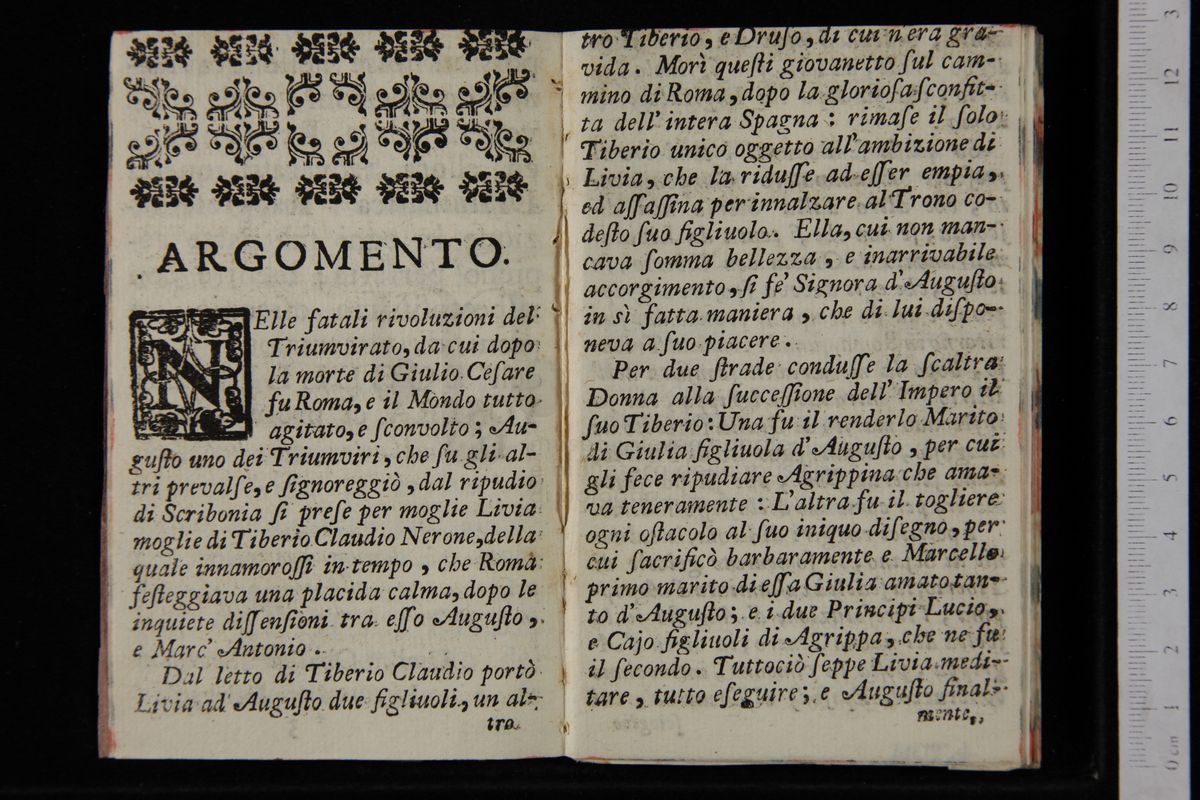 ARGOMENTO.
NElle fatali rivoluzioni del
Triumvirato, da cui dopo
la morte di Giulio Ceſare
fu Roma, e il Mondo tutto
agitato, e ſconvolto; Au-
guſto uno dei Triumviri, che ſu gli al-
tri prevalſe, e ſignoreggiò, dal ripudio
di Scribonia ſi preſe per moglie Livia
moglie di Tiberio Claudio Nerone, della
quale innamoroſſi in tempo, che Roma
feſteggiava una placida calma, dopo le
inquiete diſſenſioni tra eſſo Auguſto,
e Marc' Antonio.
Dal letto di Tiberio Claudio portò
Livia ad Auguſto due figliuoli, un al-
tro
tro Tiberio, e Druſo, di cui n'era gra-
vida. Morì queſti giovanetto ſul cam-
mino di Roma, dopo la glorioſa ſconfit-
ta dell' intera Spagna: rimaſe il ſolo
Tiberio unico oggetto all'ambizione di
Livia, che la riduſſe ad eſſer empia,
ed aſſaſſina per innalzare al Trono co-
deſto ſuo figliuolo. Ella, cui non man-
cava ſomma bellezza, e inarrivabile
accorgimento, ſi fe' Signora d'Auguſto
in sì fatta maniera, che di lui diſpo-
neva a ſuo piacere.
Per due ſtrade conduſſe la ſcaltra
Donna alla ſucceſſione dell' Impero il
ſuo Tiberio: Una fu il renderlo Marito
di Giulia figliuola d'Auguſto, per cui
gli fece ripudiare Agrippina che ama-
va teneramente: L'altra fu il togliere
ogni oſtacolo al ſuo iniquo diſegno, per
cui ſacrificò barbaramente e Marcello
primo marito di eſſa Giulia amato tan-
to d'Auguſto; e i due Principi Lucio,
e Cajo figliuoli di Agrippa, che ne fu
il ſecondo. Tuttociò ſeppe Livia medi-
tare, tutto eſeguire; e Auguſto final-
mente,